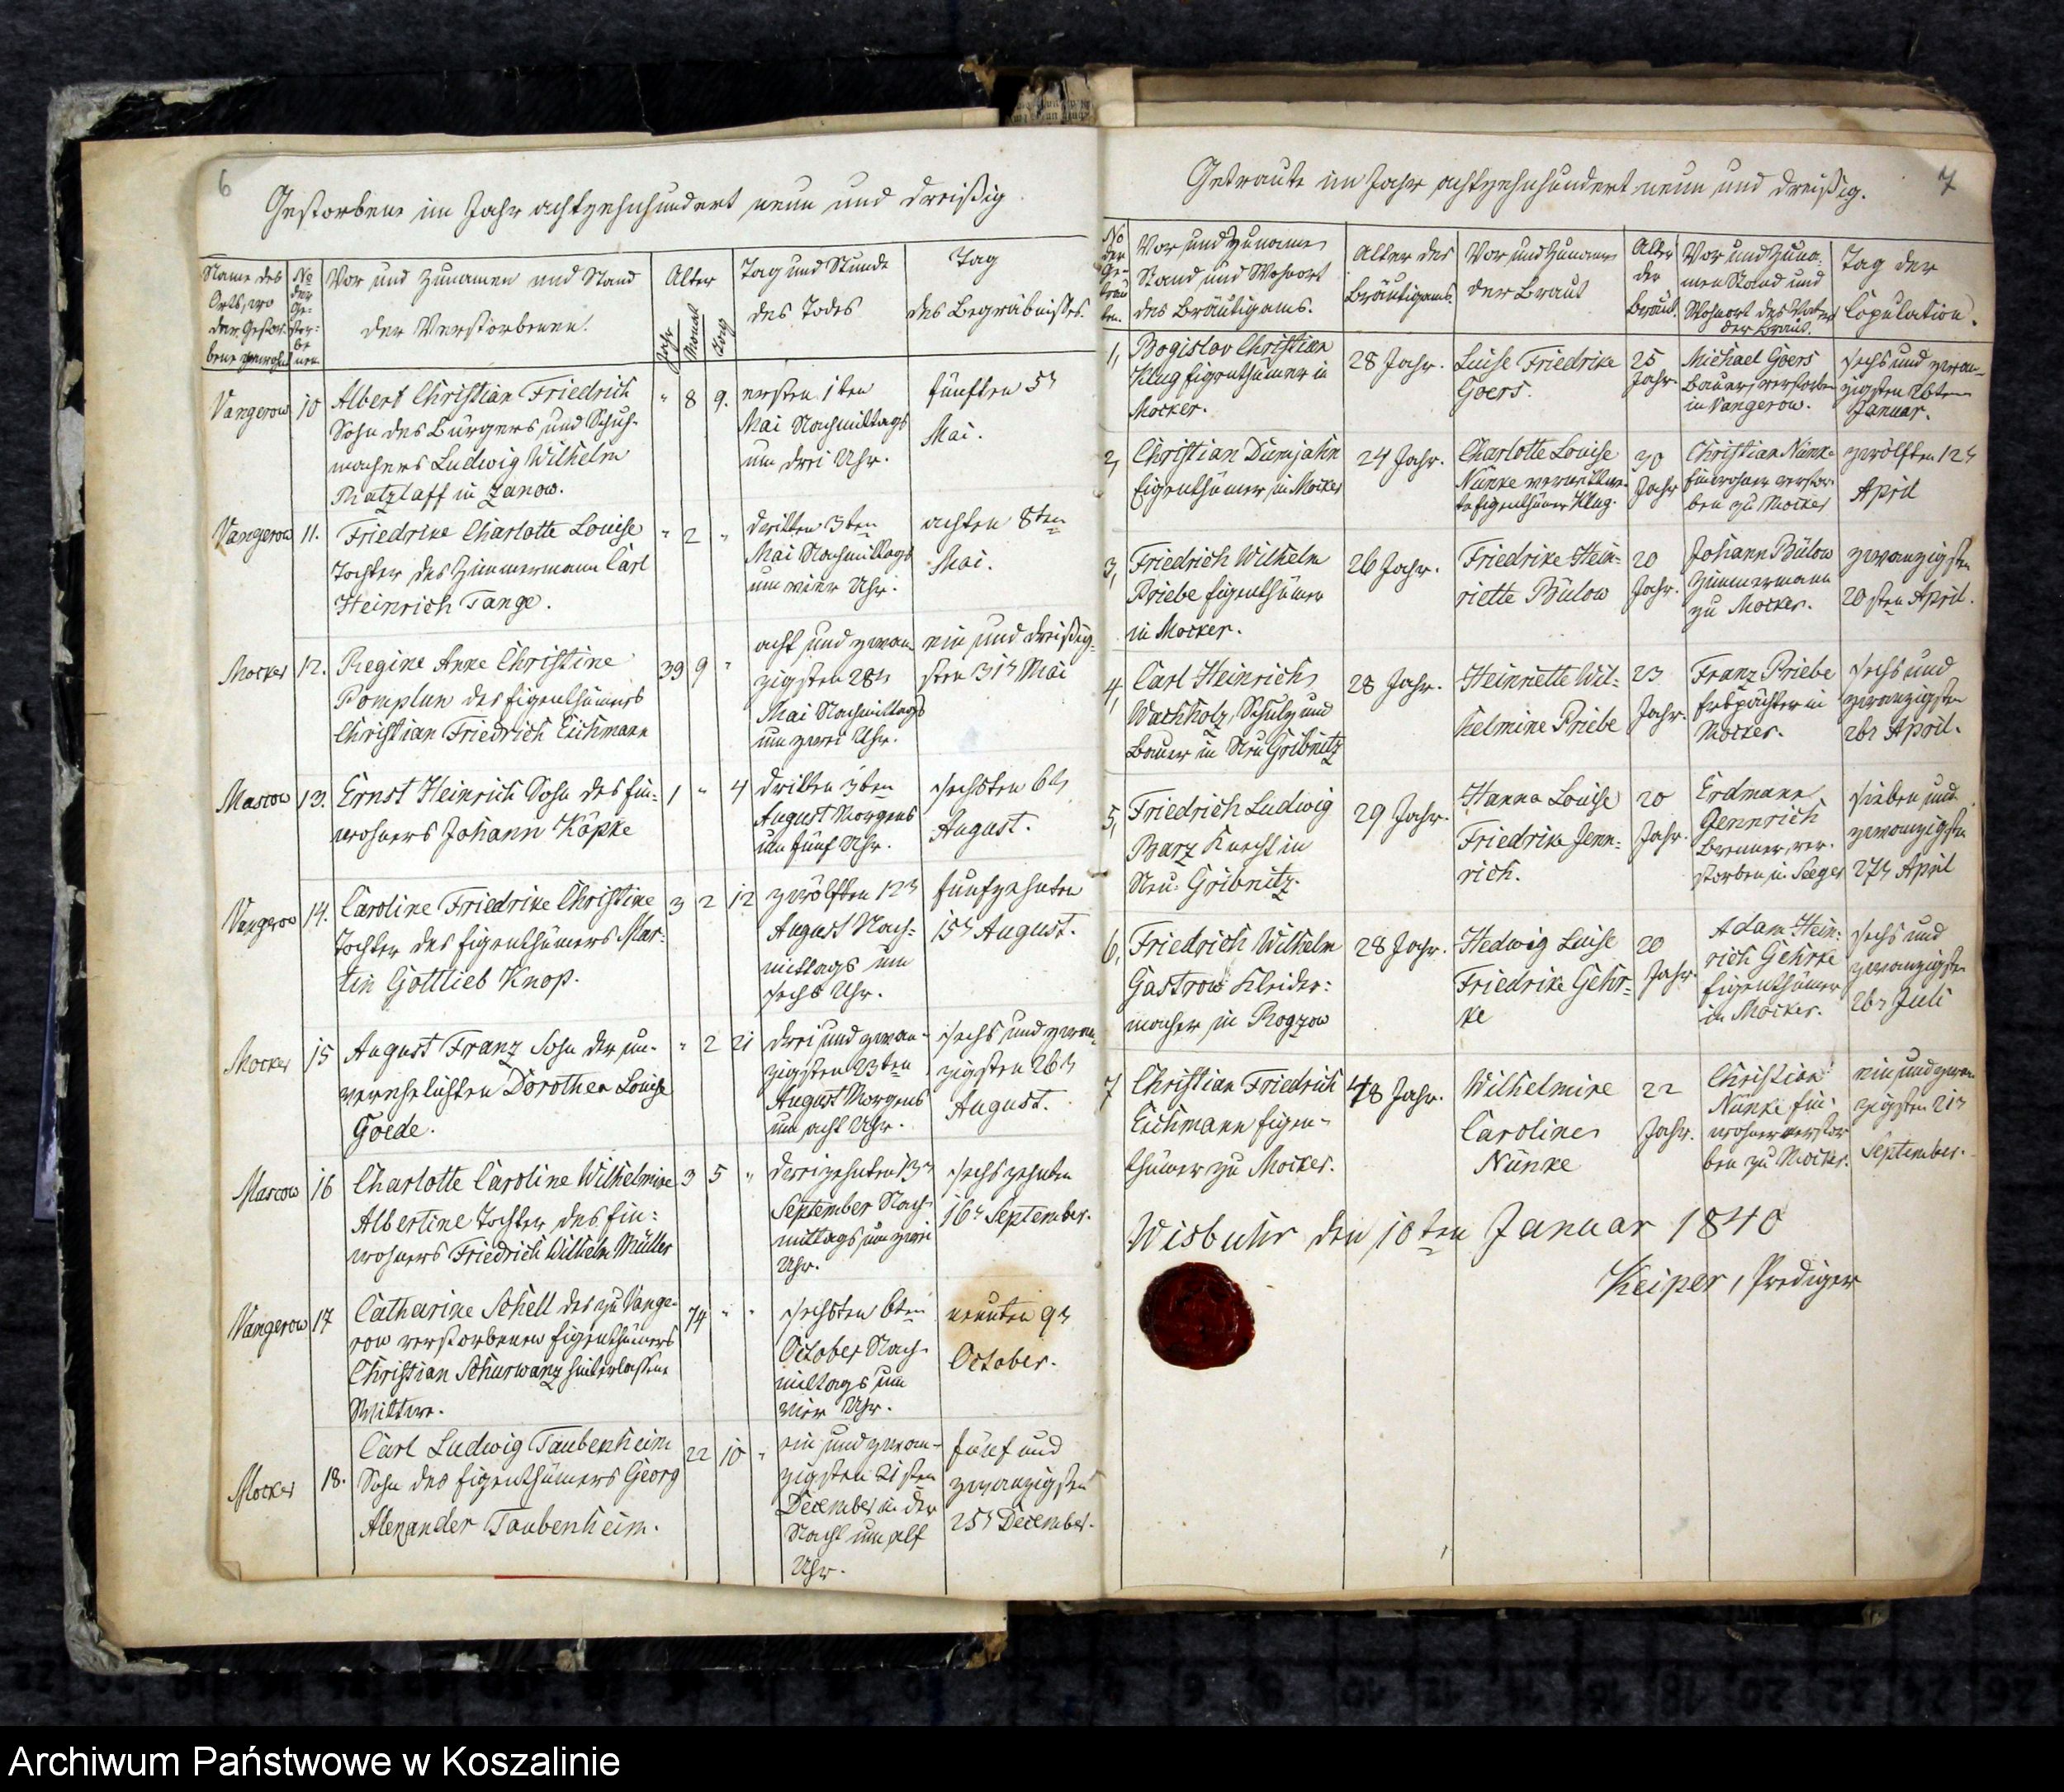 6
Gestorbene im Jahr achtzehnhundert neun und dreißig.
Name des Orts, wo der Gestorbene gewohnt
No der Gestorbenen
Vor und Zunamen und Stand der Verstorbenen.
Alter
Jahr Monat Tag
Tag und Stunde des Todes
Tag des Begräbnißes.
Vangerow 10 Albert Christian Friedrich " 8 9. ersten 1ten fünften 5t
Sohn des Bürgers und Schuh- Mai Nachmittags Mai.
machers Ludwig Wilhelm um drei Uhr.
Ratzlaff in Zanow.
Vangerow 11. Friedrike Charlotte Louise " 2 " dritten 3ten achten 8ten
Tochter des Zimmermann Carl Mai Nachmittags Mai.
Heinrich Tange. um vier Uhr.
Mocker 12. Regine Anne Christine 39 9 " acht und zwan- ein und dreißig-
Pomplun des Eigenthümers zigsten 28t sten 31t Mai
Christian Friedrich Eichmann Mai Nachmittags
um zwei Uhr.
Mascow 13. Ernst Heinrich Sohn des Ein- 1 " 4 dritten 3ten sechsten 6t
wohners Johann Köpke August Morgens August.
um fünf Uhr.
Vangerow 14. Caroline Friedrike Christine 3 2 12 zwölften 12t fünfzehnten
Tochter des Eigenthümers Mar- August Nach- 15t August.
tin Gottlieb Knop. mittags um
sechs Uhr.
Mocker 15 August Franz Sohn der un- " 2 21 drei und zwan- sechs und zwan-
verehelichten Dorothea Louise zigsten 23ten zigsten 26t
Goede. August Morgens August.
um acht Uhr.
Mascow 16 Charlotte Caroline Wilhelmine 3 5 " dreizehnten 13t sechszehnten
Albertine Tochter des Ein- September Nach- 16t September.
wohners Friedrich Wilhelm Müller mittags um zwei
Uhr.
Vangerow 17 Catharine Schell des zu Vange- 74 " " sechsten 6ten neunten 9t
row verstorbenen Eigenthümers October Nach- October.
Christian Schurwanz hinterlassene mittags um
Wittwe. vier Uhr.
Mocker 18. Carl Ludwig Taubenheim 22 10 " ein und zwan- fünf und
Sohn des Eigenthümers Georg zigsten 21sten zwanzigsten
Alexander Taubenheim. December in der 25t December.
Nacht um elf
Uhr.
7
Getraute im Jahr achtzehnhundert neun und dreißig.
No der Getrauten.
Vor und Zunamen Stand und Wohnort des Bräutigams.
Alter des Bräutigams.
Vor und Zunamen der Braut
Alter der Braut.
Vor und Zunamen Stand und Wohnort des Vaters der Braut.
Tag der Copulation.
1, Bogislav Christian 28 Jahr. Luise Friedrike 25 Michael Goers sechs und zwan-
Klug Eigenthümer in Goers. Jahr. Bauer, verstorben zigsten 26ten
Mocker. in Vangerow. Januar.
2, Christian Dumjahn 24 Jahr. Charlotte Louise 30 Christian Nünke zwölften 12t
Eigenthümer in Mocker Nünke verwittwe- Jahr Einwohner verstor- April
te Eigenthümer Klug. ben zu Mocker
3, Friedrich Wilhelm 26 Jahr. Friedrike Hein- 20 Johann Bülow zwanzigsten
Priebe Eigenthümer riette Bülow Jahr. Zimmermann 20sten April.
in Mocker. zu Mocker.
4, Carl Heinrich 28 Jahr. Heinriette Wil- 23 Franz Priebe sechs und
Wachholz, Schulz und helmine Priebe Jahr. Erbpächter in zwanzigsten
Bauer in Neu Gribnitz Mocker. 26t April.
5, Friedrich Ludwig 29 Jahr. Hanna Louise 20 Erdmann sieben und
Barz Knecht in Friedrike Jenn- Jahr. Jennrich zwanzigsten
Neu-Gribnitz. rich. Brenner, ver- 27t April
storben in Seeger
6, Friedrich Wilhelm 28 Jahr. Hedwig Luise 20 Adam Hein- sechs und
Gastrow Kleider- Friedrike Gehr- Jahr. rich Gehrke zwanzigsten
macher in Rogzow ke Eigenthümer 26t Juli
in Mocker.
7 Christian Friedrich 48 Jahr. Wilhelmine 22 Christian ein und zwan-
Eichmann Eigen- Caroline Jahr. Nünke Ein- zigsten 21t
thümer zu Mocker. Nünke wohner verstor- September.
ben zu Mocker.
Wisbuhr den 10ten Januar 1840
Keiper, Prediger
Archiwum Państwowe w Koszalinie